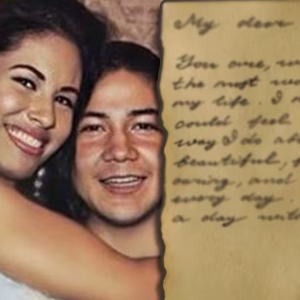 My dear
You are, w
the most w
my life. I
could feel
way I do ab
beautiful, f
caring, and
every day.
a day with